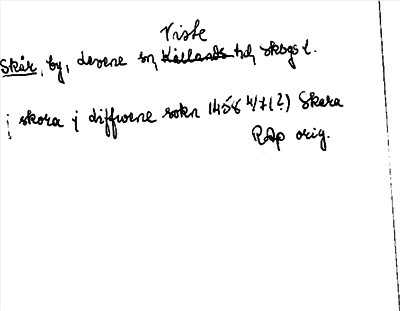 Viste
Skår, by, Levene sn, Kållands hd, Skbgs l.
j skora j diffwene sokn 1458 4/7 (?) Skara
RAp orig.